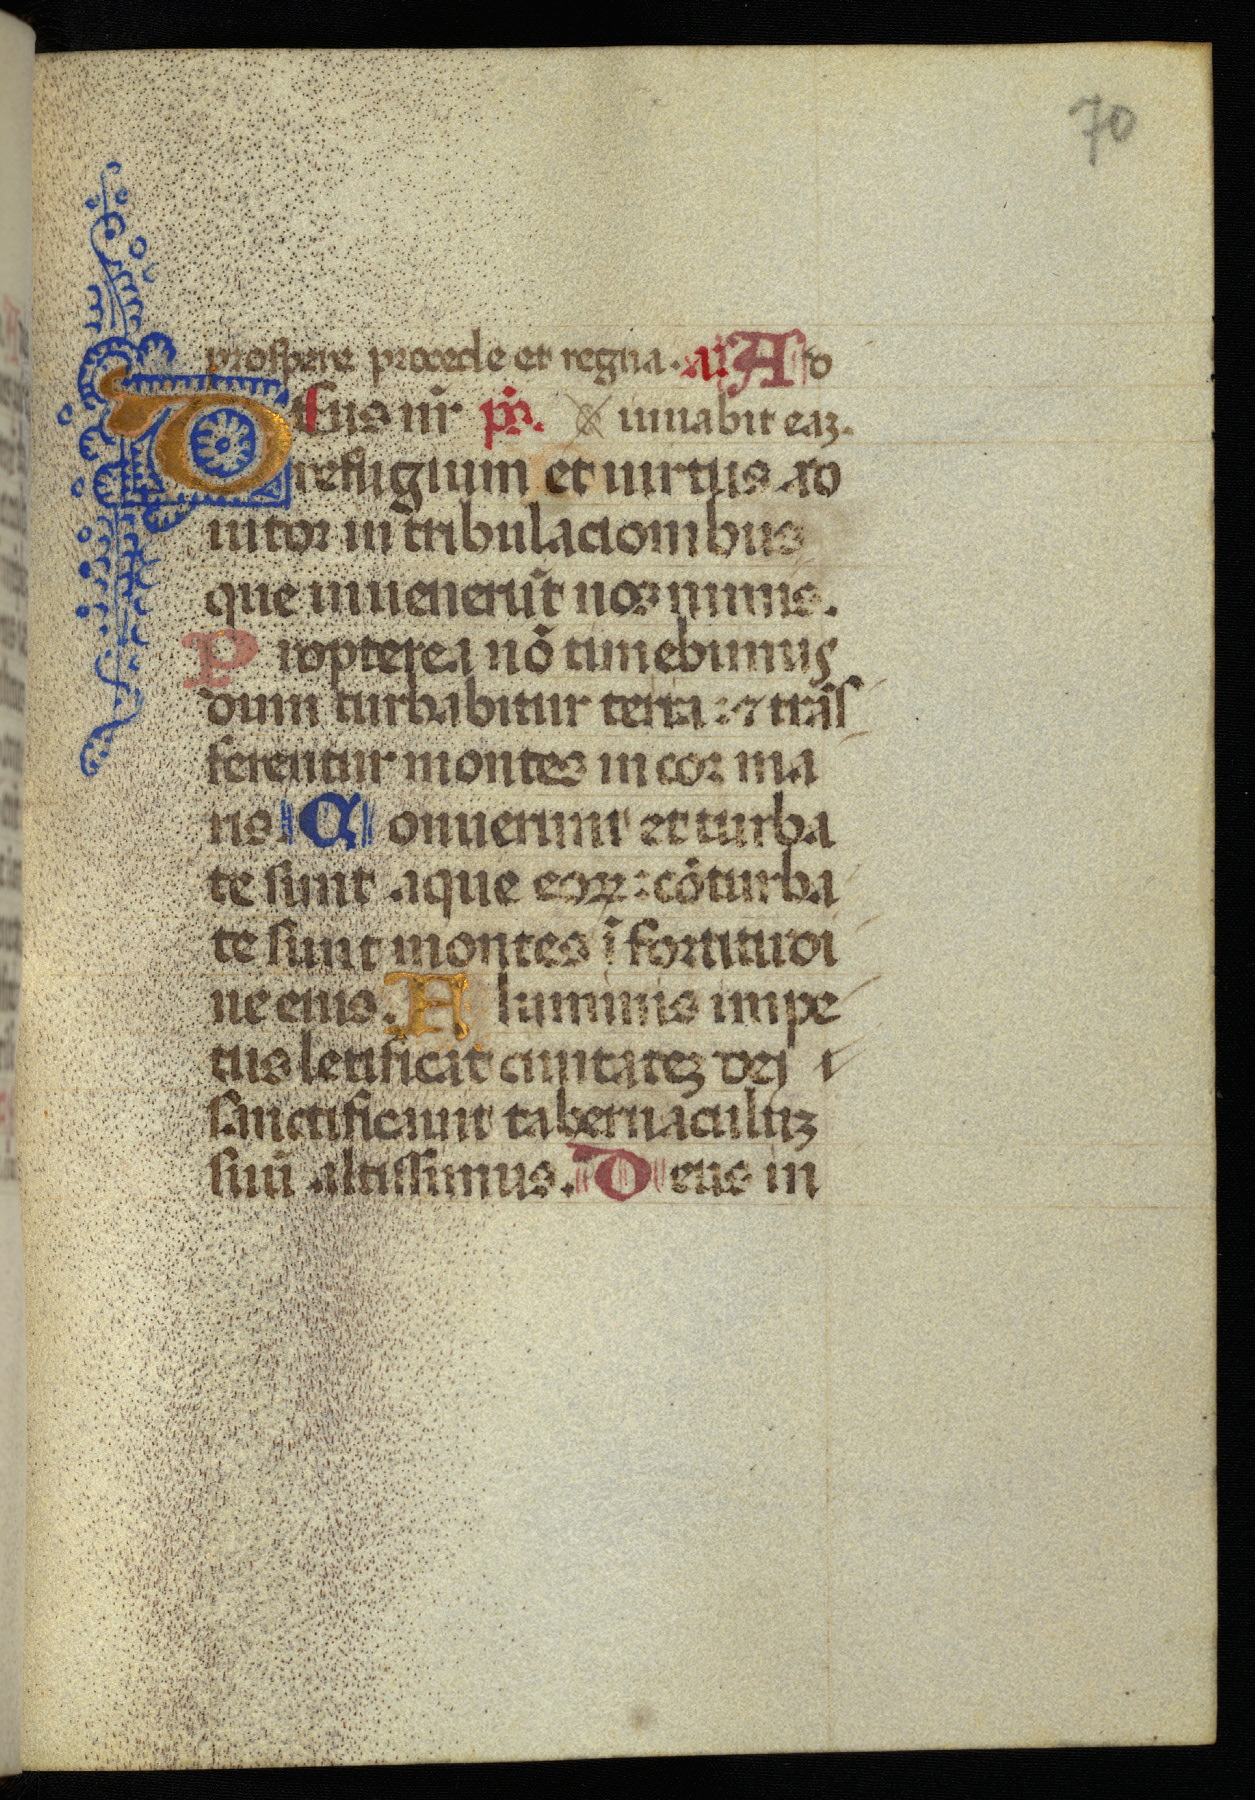 70
prospere procede et regna. añ Ad
Deus nr̄ ps̄. iuuabit eaʒ.
refugium et uirtus ad
iutor in tribulacionibus
que inuenerūt nos nimis.
Propterea nō timebimus
dum turbabitur terra : ⁊ trāſ
ferentur montes in cor ma
ris. Sonuerunt et turba
te sunt aque eoꝝ : cōturba
te sunt montes ī fortitudi
ne eius. Fluminis impe
tus letificat ciuitateʒ dei
sanctificauit tabernaculuʒ
suu altissimus. Deus in